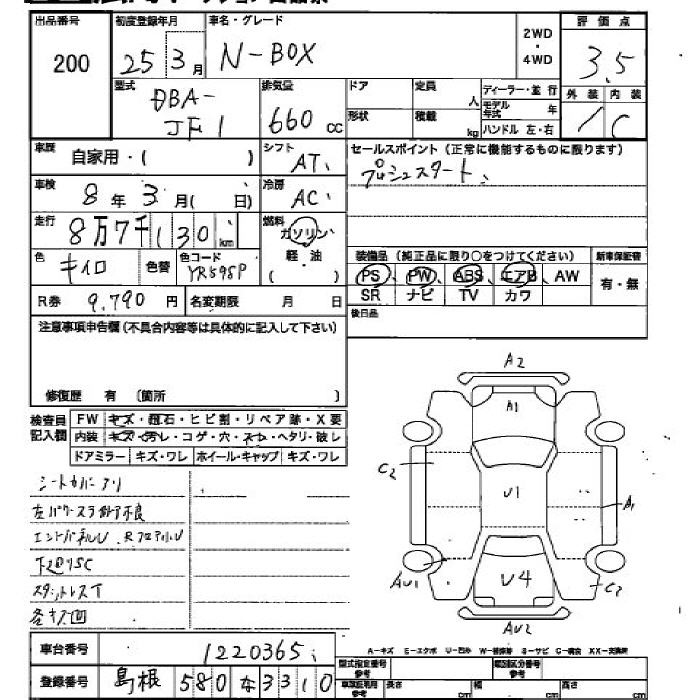 出品番号 初度登録年月 車名・グレード 2WD・4WD 評価点
200 25 3月 N-BOX 3.5
型式 DBA-JF1 排気量 660 cc ドア 定員 人 ディーラー・並行 外装 内装
形状 積載 kg モデル年式 年 ハンドル 左・右 C
車歴 自家用・( ) シフト AT セールスポイント (正常に機能するものに限ります)
プッシュスタート
車検 8年 3月( 日) 冷房 AC
走行 8万7千130km 燃料 ガソリン 軽・油 ( )
色 キイロ 色替 色コード YR595P
装備品 (純正品に限り○をつけてください) 新車保証書
PS、PW、ABS、エアB、AW 有・無
SR ナビ TV カワ
R券 9,790円 名変期限 月 日
後日品
注意事項申告欄(不具合内容等は具体的に記入して下さい)
修復歴 有 〔箇所 〕
検査員記入欄 FW キズ・飛石・ヒビ割・リペア跡・X要
内装 キズ・汚レ・コゲ・穴・スレ・ヘタリ・破レ
ドアミラー キズ・ワレ ホイール・キャップ キズ・ワレ
シートカバーアリ
左パワースラ 不良
エンドパネルU
下廻リSC
スタットレスT
各キズ凹
A2
A1
C2
U1
A1
AU1
U4
C2
AU2
A-キズ E-エクボ U-凹み W-補修跡 S-サビ C-腐食 XX-交換済
車台番号 1220365
型式指定番号 参考 類別区分番号 参考
登録番号 島根 580 な 3310
長さ cm 幅 cm 高さ cm